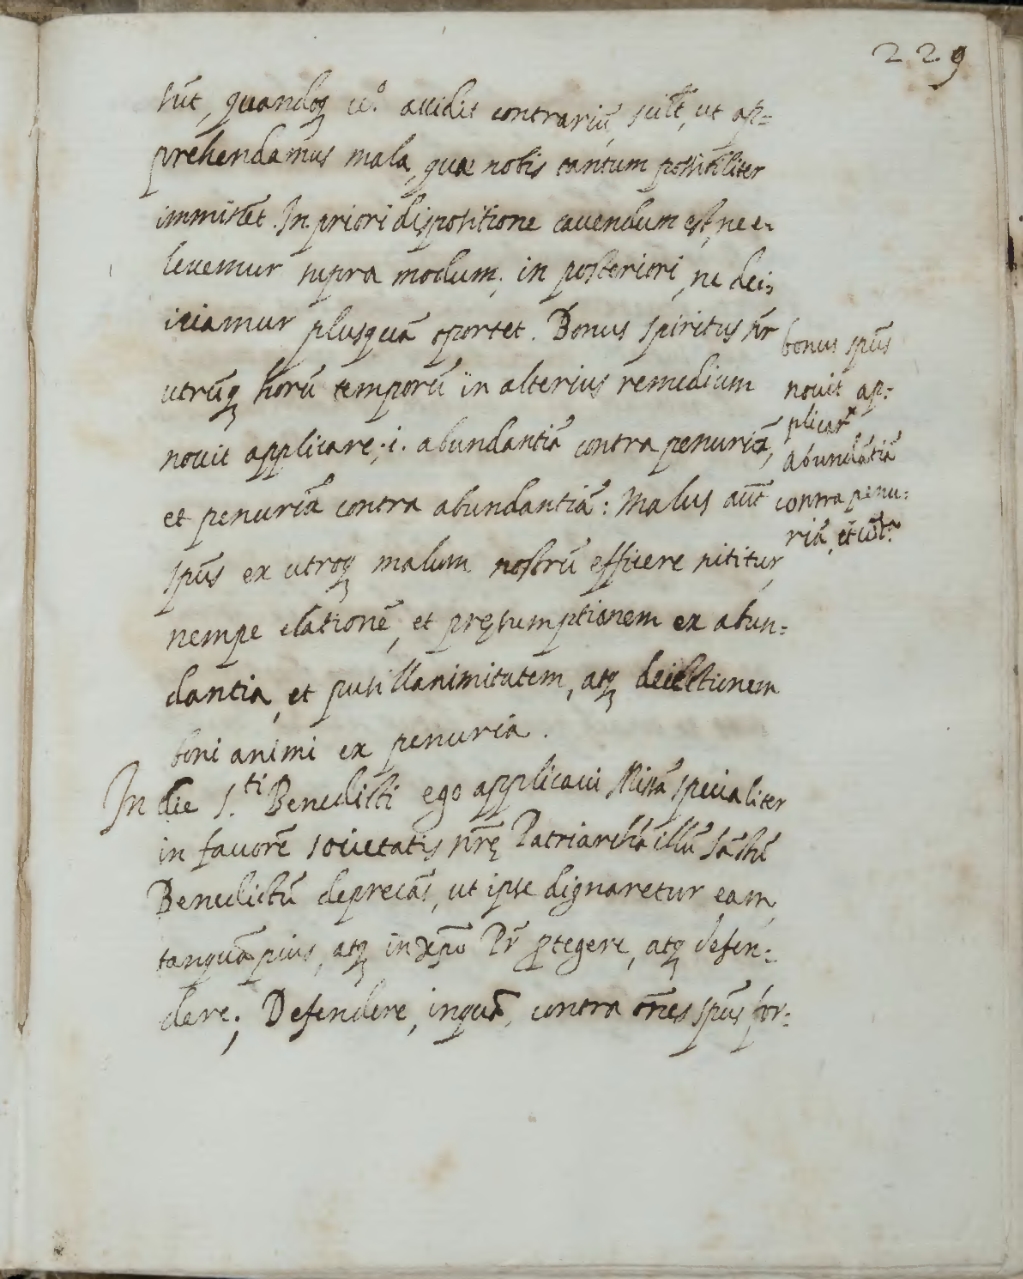 229
sūt, quandoq; u.º accidit contrariū, scilt, ut ap=
prehendamus mala, quæ nobis tantum possibiliter
imminēt. In priori dispositione cavendum est, ne e-
levemur supra modum; in posteriori, ne dei-
iciamur plusquā oportet. Bonus spiritus sr̄
utrūq; horū temporū in alterius remedium
novit applicare, .i. abundantiā contra penuriā,
et penuriā contra abundantiā: Malus aūt
spūs ex utroq; malum nostrū efficere nititur,
nempe elationē, et pręsumptionem ex abun=
dantia, et pusillanimitatem, atq; deiectionem
boni animi ex penuria.
bonus spūs
novit ap=
plicar
abundātiā
contra penu=
riā, et
In die S.ti Benedicti ego applicavi Missā specialiter
in favorē societatis nr̄ę Patriarchā illū Sāctū
Benedictū deprecās, ut ipse dignaretur eam,
tanquā pius, atq; in xp̄o Pr̄ ꝓtegere, atq; defen=
dere; Defendere, inquā, contra ōnes spūs for=